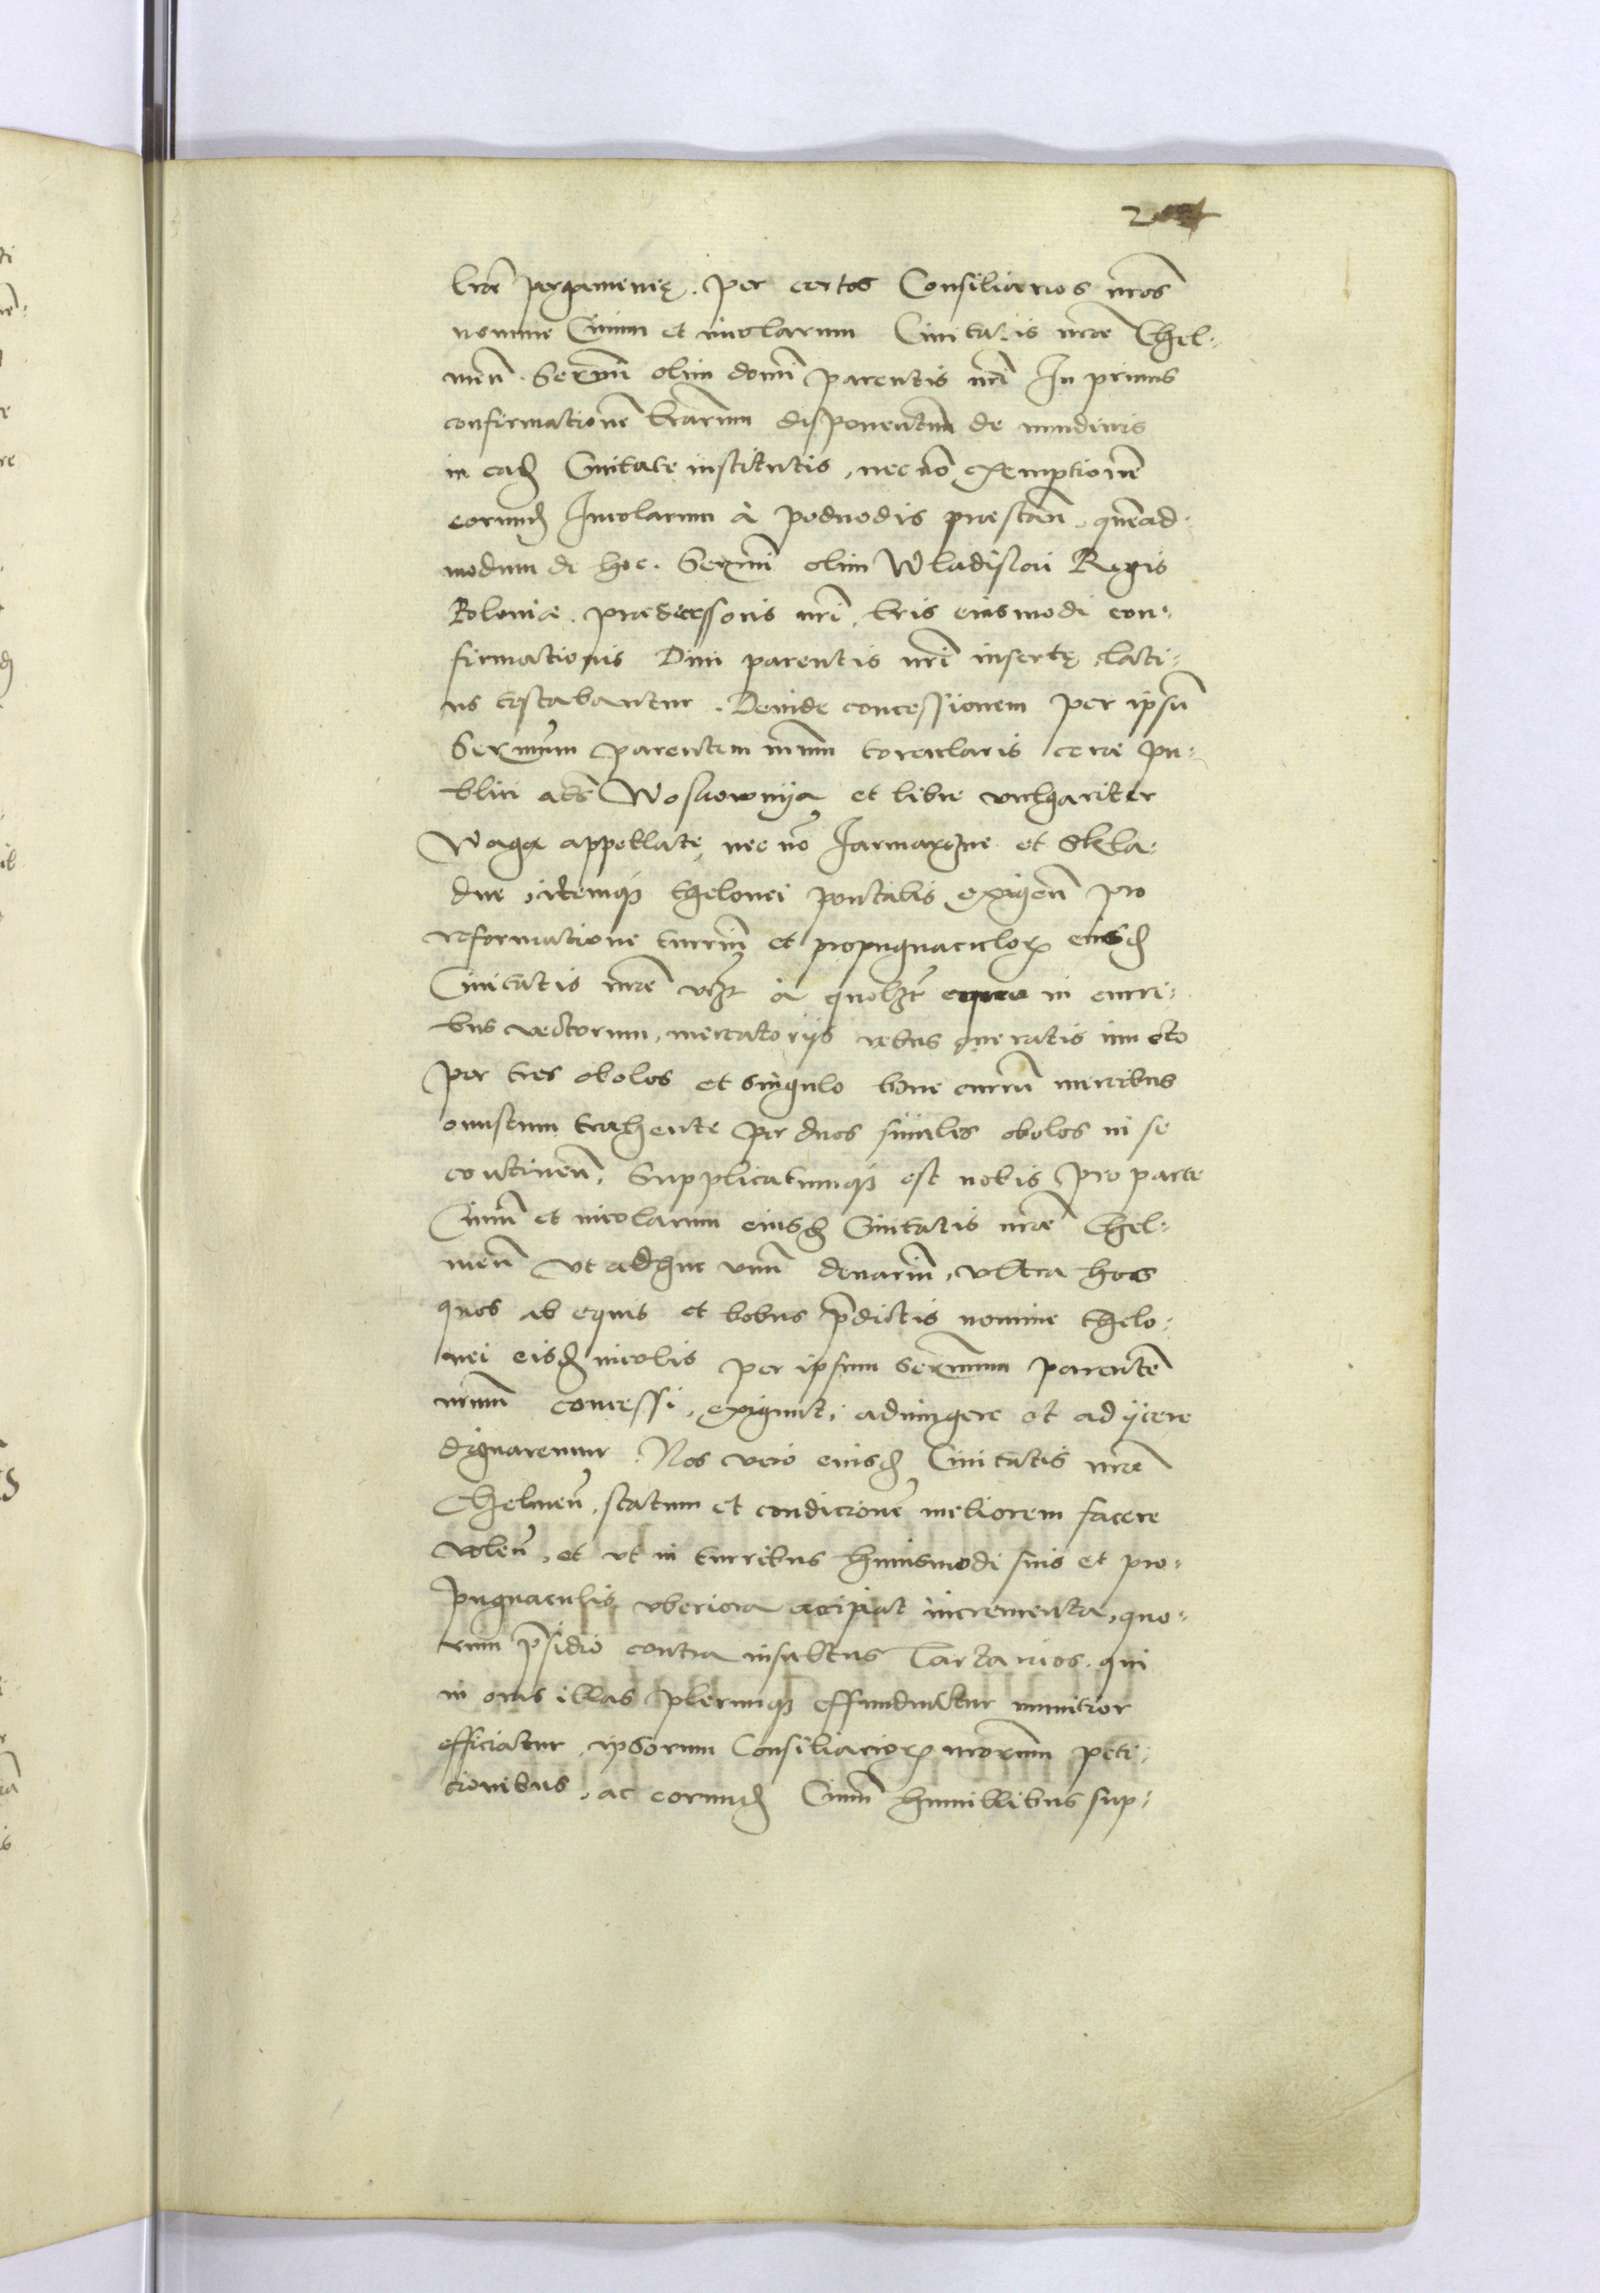 lrae pergameneę per certos Consiliarios nros
nomine Civium et incolarum Civitatis nrae Chel-
men. Sermi olim domi parentis nri In primis
confirmationem lrarum disponentium de nundinis
in eade Civitate institutis, nec no exemptionem
eorunde Incolarum à podvodis praestan. quemad-
modum de hoc. Sermi olim Wladislai Regis
Poloniae. praedecessoris nri, lris eiusmodi con-
firmationis Dmi parentis nri insertę, lati-
us testabantur. Deinde concessionem per ipsum
Sermum parentem nrum torcularis cerae pu-
blici als Woskownya et librae vulgariter
Waga appellate, nec no Jarmarczne et Skla-
dne, itemq thelonei pontalis exigen pro
reformatione turrium et propugnaculor eiusde
Civitatis nrae vcz à quolzt equo in curri-
bus vectorum, mercatoriis rebus oneratis iuncto
per tres obolos et singulo bove currum mercibus
onustum trahente per duos similes obolos in se
continen, Supplicatumq est nobis pro parte
Civium et incolarum eiusde Civitatis nrae Chel-
men ut adhuc unum denarium, ultra hos
quos ab equis et bobus pdictis nomine thelo-
nei eisde incolis per ipsum Sermum parentem
nrum concessi, exigunt, adiungere et adijcere
dignaremur. Nos vero eiusde Civitatis nrae
Chelmen, statum et condicionem meliorem facere
volen, et ut in turribus huiusmodi suis et pro-
pugnaculis uberiora accipiat incrementa, quo-
rum psidio contra insultus Tartarios, qui
in oras illas plerunq effunduntur munitior
efficiatur, ipsorum Consiliarior nrorum peti-
tionibus, ac eorunde Civium humillibus sup-